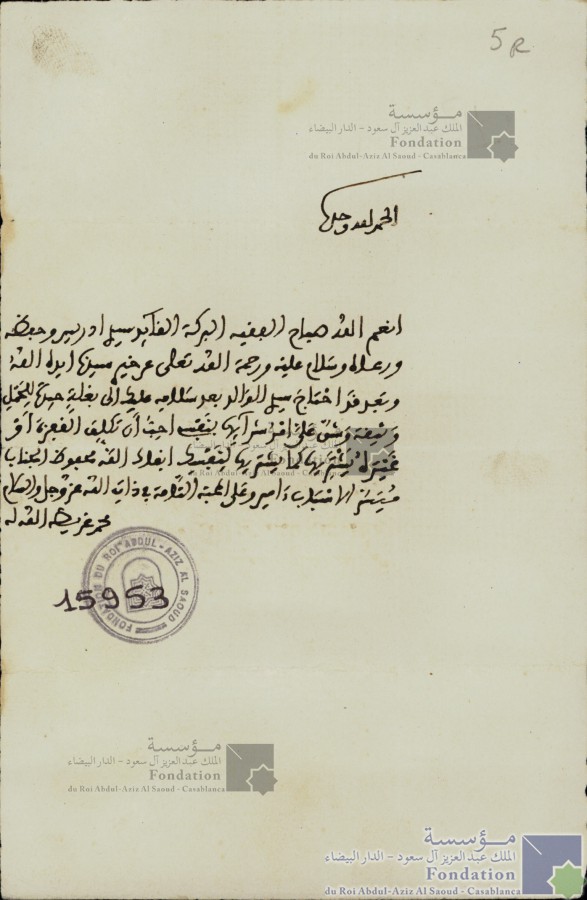 5 R
مؤسسة
الملك عبد العزيز آل سعود - الدار البيضاء
Fondation
du Roi Abdul-Aziz Al Saoud - Casablanca
الحمد لله وحده
انعم الله صباح الفقيه البركة القائد سيدي ادريس وحفظه
ورعاه وسلام عليه ورحمة الله تعالى عن خير سيدنا ايده الله
وبعد فقد احتاج سيدي الوالد بعد سلامه عليك الى بغلة جيدة للحمل
وشق على امر شرائها بنفسه احب ان تكلف
غيره يشتريها كما يشتريها لنفسك ابقاك الله محفوظ الجناب
ميسر الاسباب ءامين وعلى المحبة التامة في ذات الله عز وجل والسلام
محمد غريط الله له
FONDATION DU ROI ABDUL-AZIZ AL SAOUD
15953
مؤسسة
الملك عبد العزيز آل سعود - الدار البيضاء
Fondation
du Roi Abdul-Aziz Al Saoud - Casablanca
مؤسسة
الملك عبد العزيز آل سعود - الدار البيضاء
Fondation
du Roi Abdul-Aziz Al Saoud - Casablanca